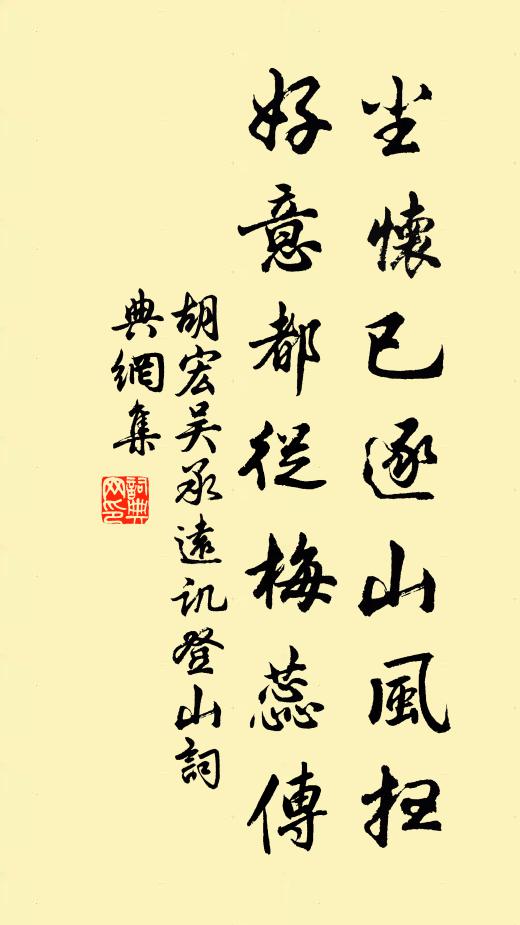 尘懷已逐山風扫
好意都從梅蕊傳
胡宏吴承遠訊登山詞
典網集
詞典網印